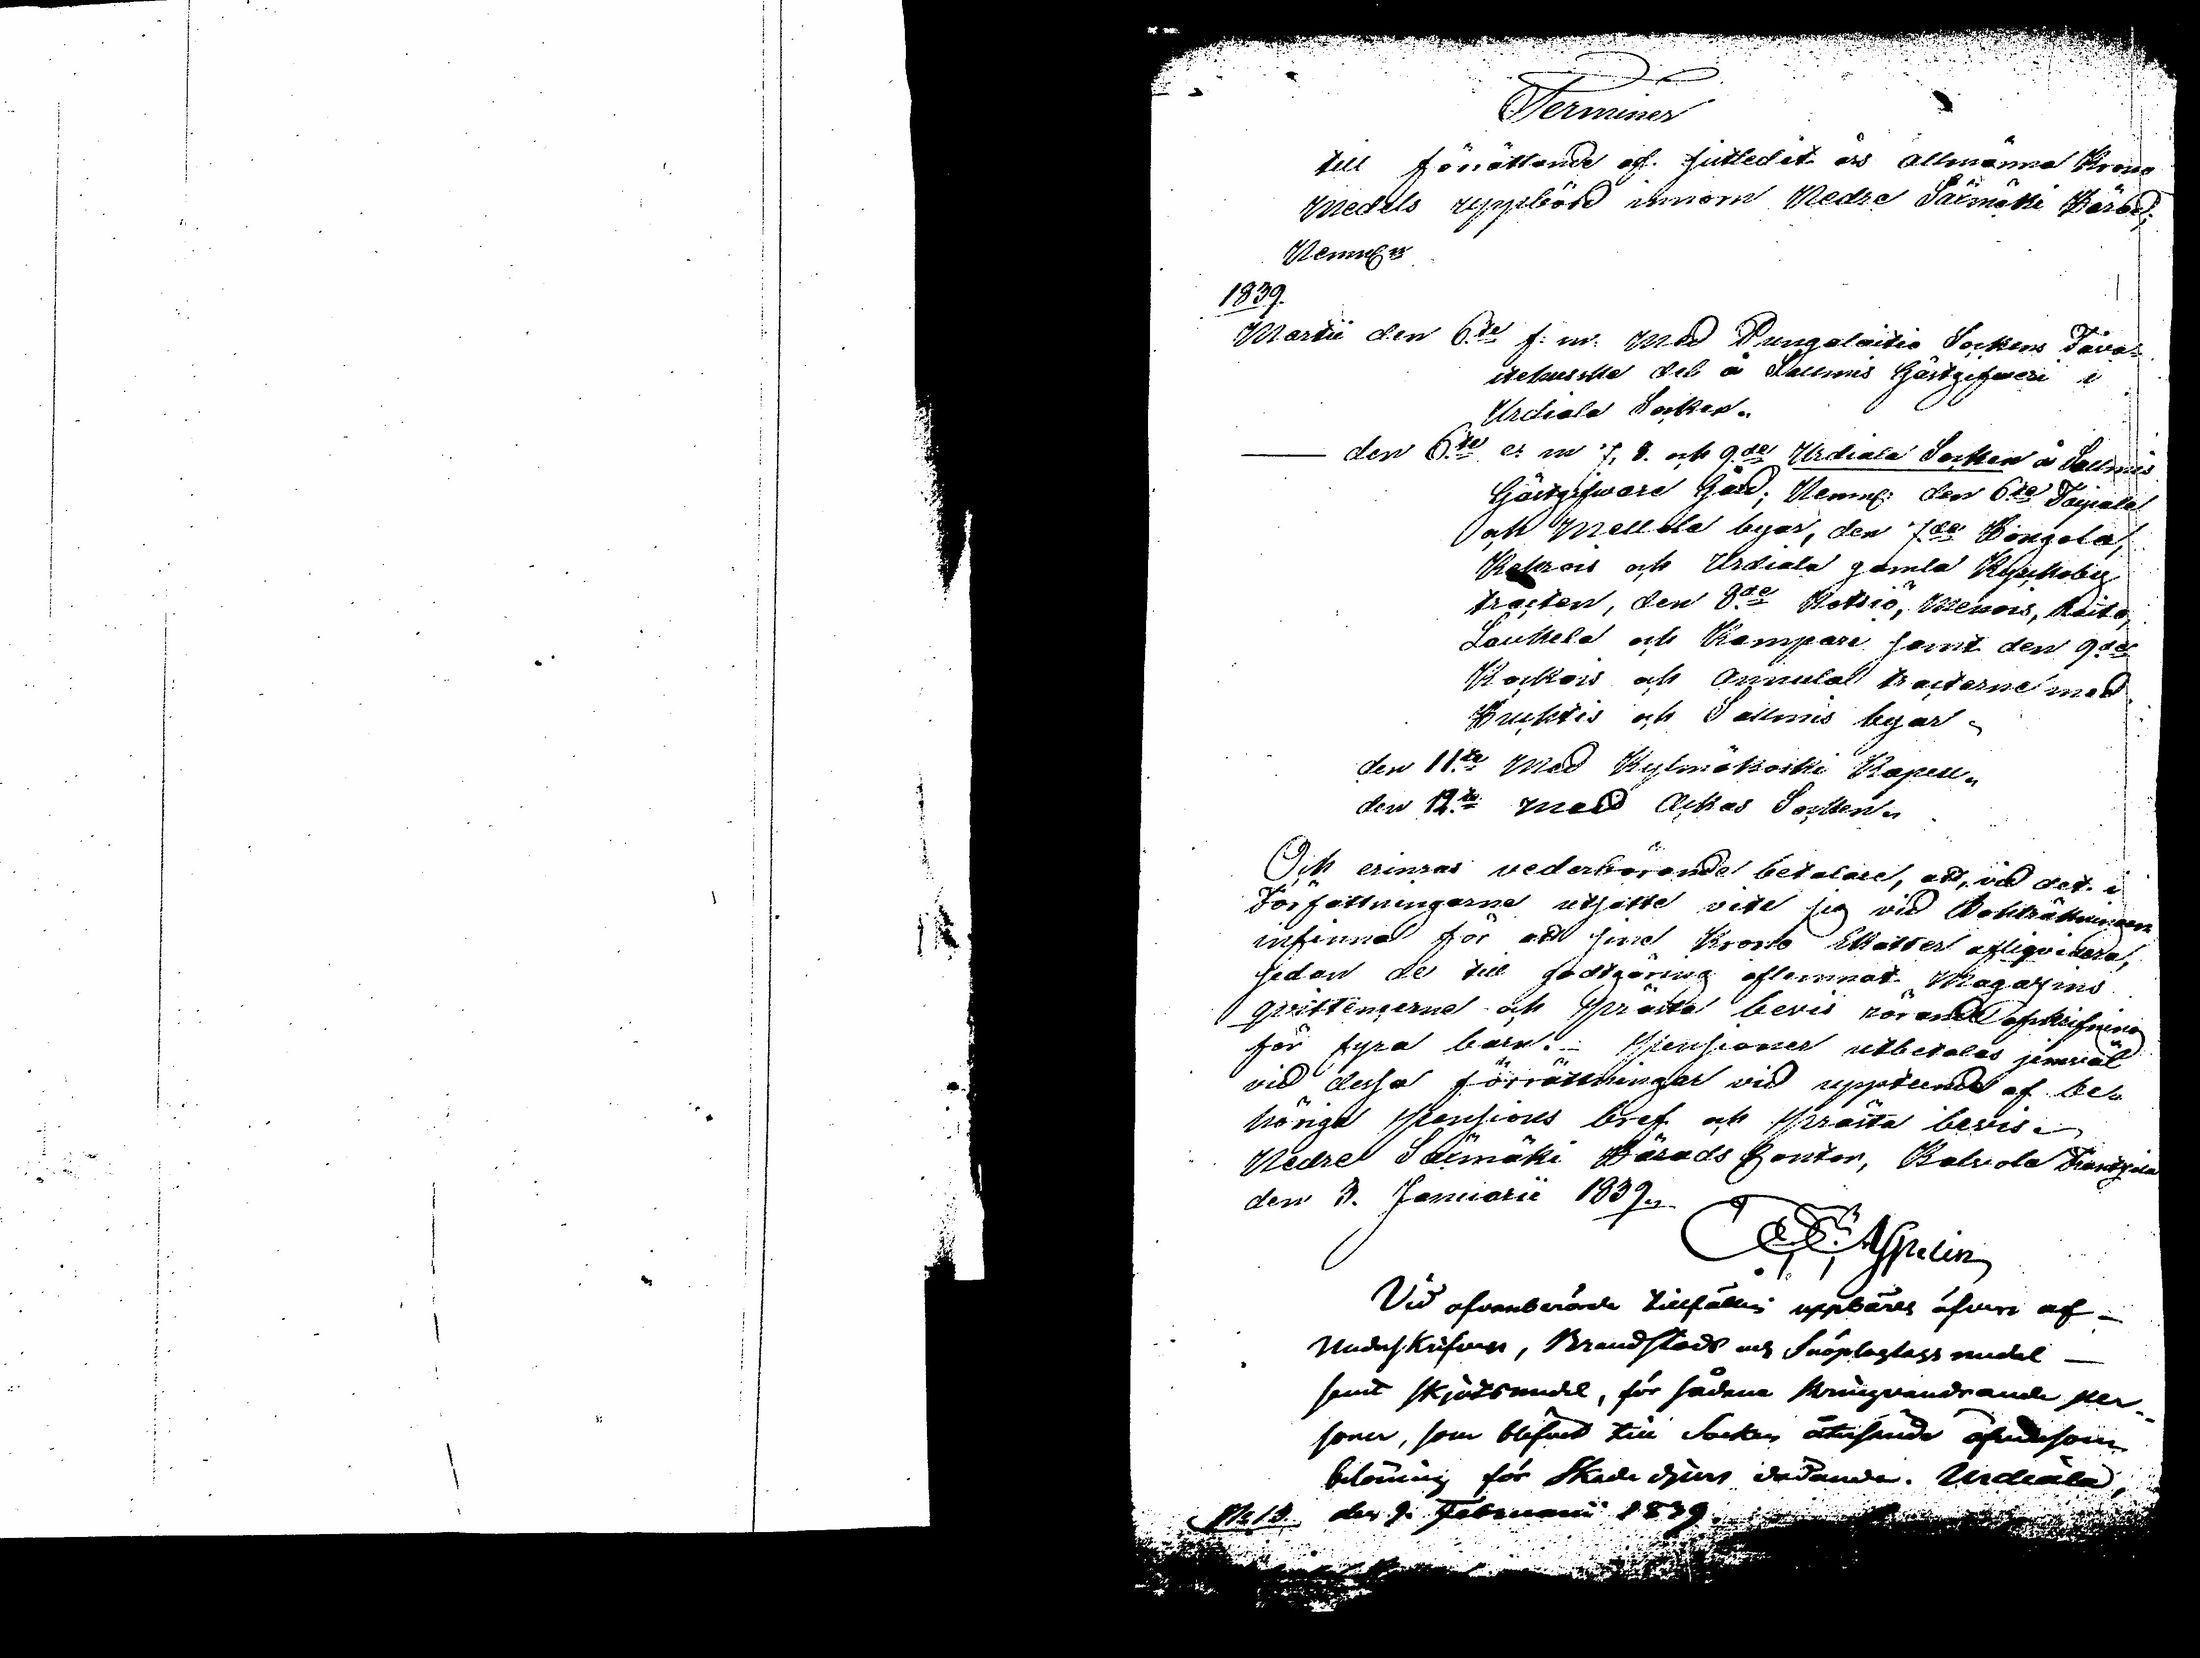 Terminer
till förrättande af sistledit års allmänna Krono
Medels uppbörd innom Nedre Säxmäki Härad;
Nemnl:n
1839.
Martii den 6:te f. m. Med Pungalaitio Sockens Tava-
stehusska del å Sallmis Gästgifveri i
Urdiala Socken.
den 6:te e. m 7, 8. och 9:de Urdiala Socken å Sallmis
Gästgifvare Gård; Nemnl: den 6:te Taipale
och Mellola byar, den 7:de Hongola,
och Urdiala gamla Kyrckoby
tracten, den 8:de Matkiö, Menois, Raito,
Laukela och Kampare samt den 9:de
Kockois och Annula tracterne med
Huchtis och Sallmis byar
den 11:te Med Kylmäkoski Kapell.
den 12:te med Ackas Socken.
Och erinras vederbörande betalare, att, vid det i
Författningarne utsatte vite sig vid
infinna för att sine Krono Skatter afliqvidera,
sedan de till godtgöring aflemnat Magazins
qvittencerne och Prästa bevis rörande afskrifning
för fyra barn. Pensioner utbetalas jemväl
vid dessa förrättningar vid uppteende af be-
hörige Pensions bref och Prästa bevis.
Nedre Säxmäki Härads Contor, Kalvola
den 3. Januarii 1839.
Asspelin
Vid ofvanberörde tillfällen uppbäres äfven af
Undertskrifven, Brandstods och Snöplogslags medel
samt skjutsmedel, för sådane kringvandrande per-
soner, som blifvit till Socken återsände äfvensom
belöning för Skadedjurs dödande. Urdiala,
den 9. Februarii 1839.
No 13.